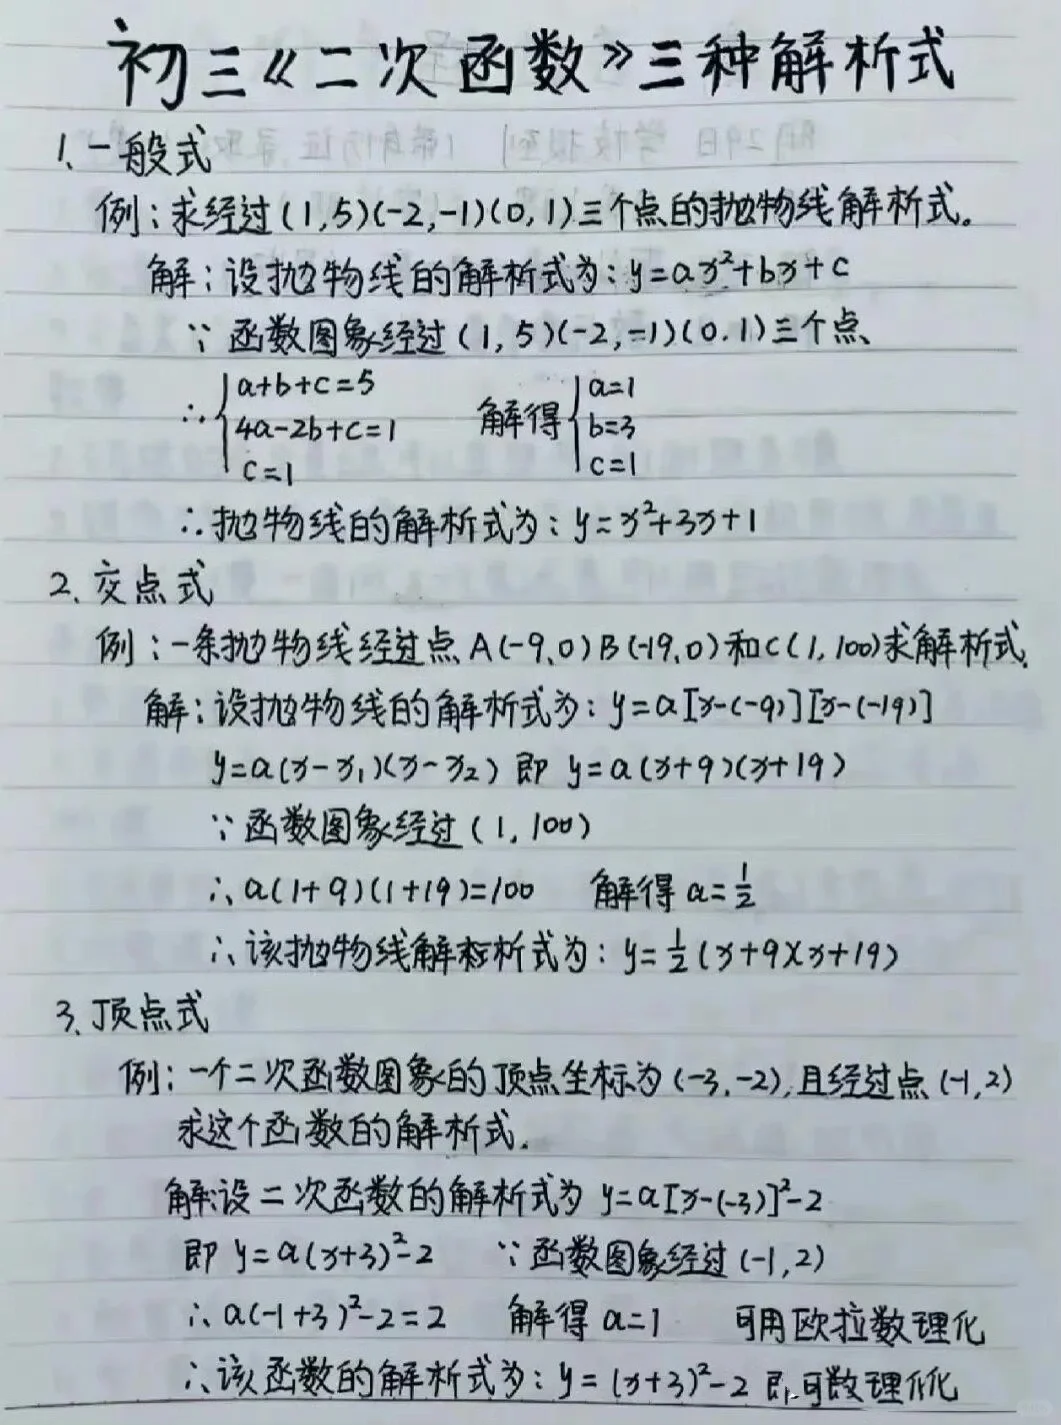 初三《二次函数》三种解析式
1、一般式
例：求经过(1,5)(-2,-1)(0,1)三个点的抛物线解析式。
解：设抛物线的解析式为：y=ax²+bx+c
∵ 函数图象经过(1,5)(-2,-1)(0.1)三个点、
∴ { a+b+c=5
4a-2b+c=1
c=1
解得 { a=1
b=3
c=1
∴抛物线的解析式为：y=x²+3x+1
2、交点式
例：一条抛物线经过点A(-9,0)B(-19,0)和C(1,100)求解析式.
解：设抛物线的解析式为：y=a[x-(-9)][x-(-19)]
y=a(x-x₁)(x-x₂) 即 y=a(x+9)(x+19)
∵函数图象经过(1,100)
∴a(1+9)(1+19)=100 解得 a=1/2
∴该抛物线解析式为：y=1/2(x+9)(x+19)
3、顶点式
例：一个二次函数图象的顶点坐标为(-3,-2),且经过点(-1,2)
求这个函数的解析式.
解:设二次函数的解析式为 y=a[x-(-3)]²-2
即 y=a(x+3)²-2 ∵函数图象经过(-1,2)
∴a(-1+3)²-2=2 解得 a=1 可用欧拉数理化
∴该函数的解析式为：y=(x+3)²-2 即可数理化